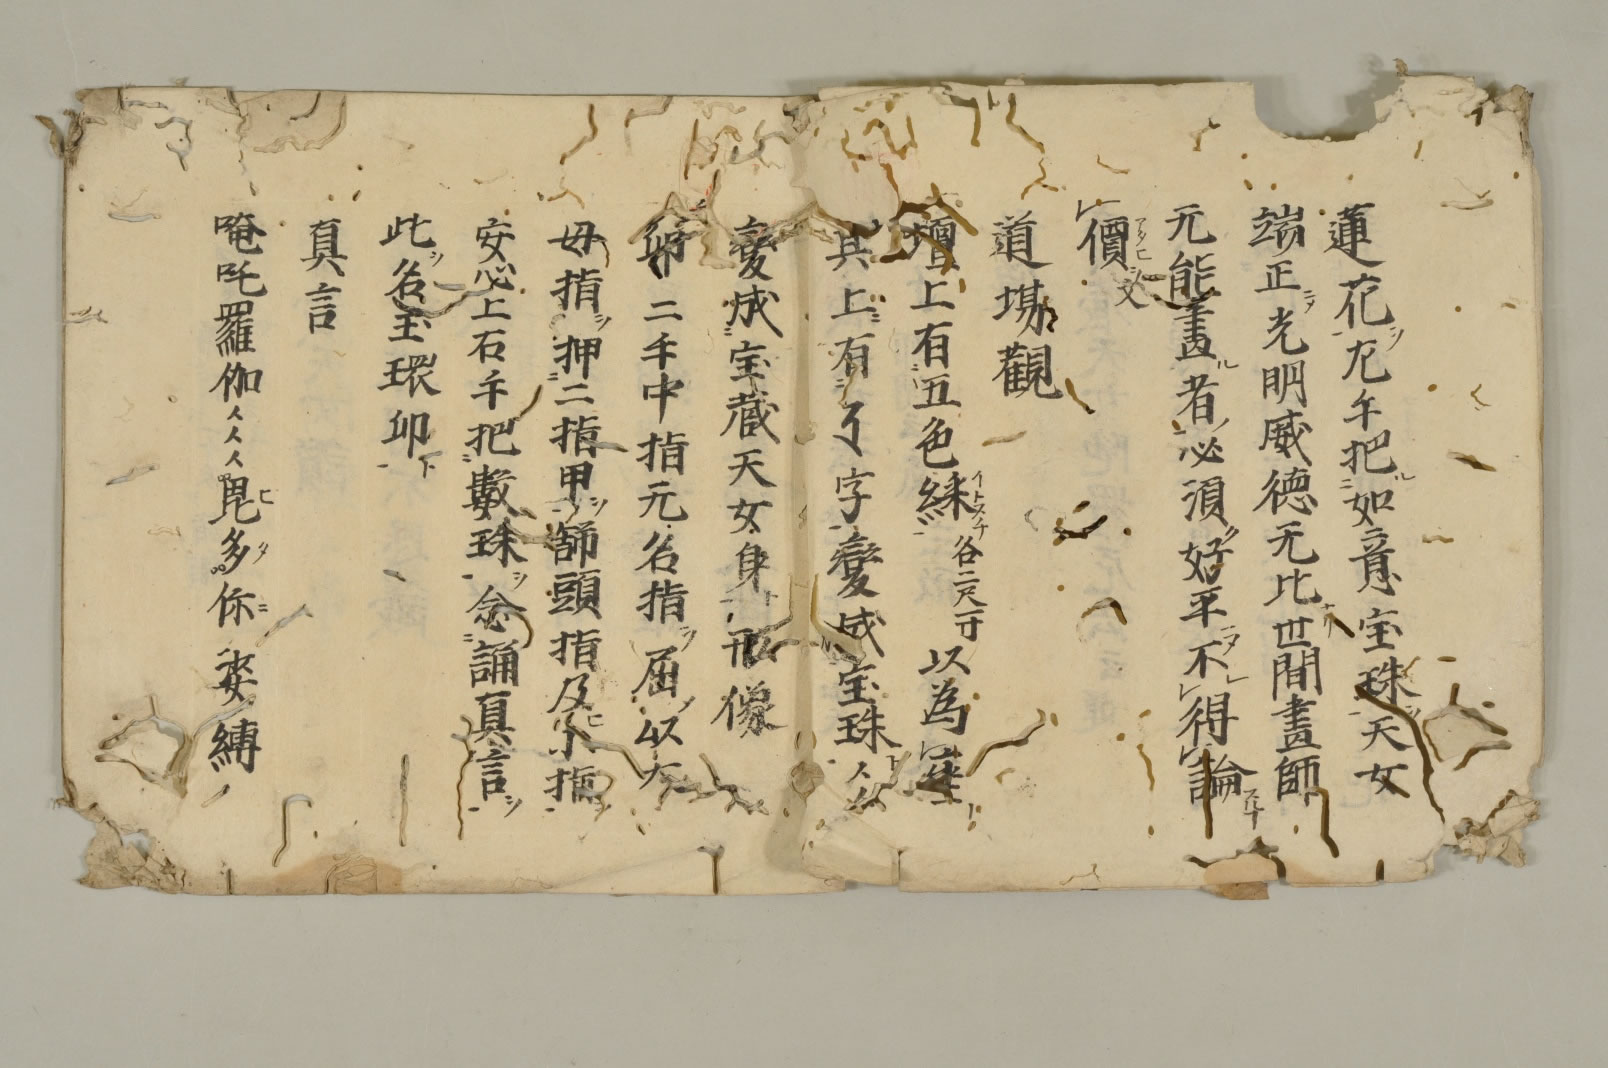 蓮花尤手把如意宝珠天女
端正光明威德无比世間畫師
无能畫者必須好平不得論
價文
道場觀
壇上有五色綵各二尺一寸以為座
其上有字變成宝珠々々
變成宝蔵天女身形像
印二手中指无名指屈以大
母指押二指甲節頭指及小指
安心上右手把數珠念誦真言
此名玉環印
真言
唵吒羅伽々々々毘多你娑縛